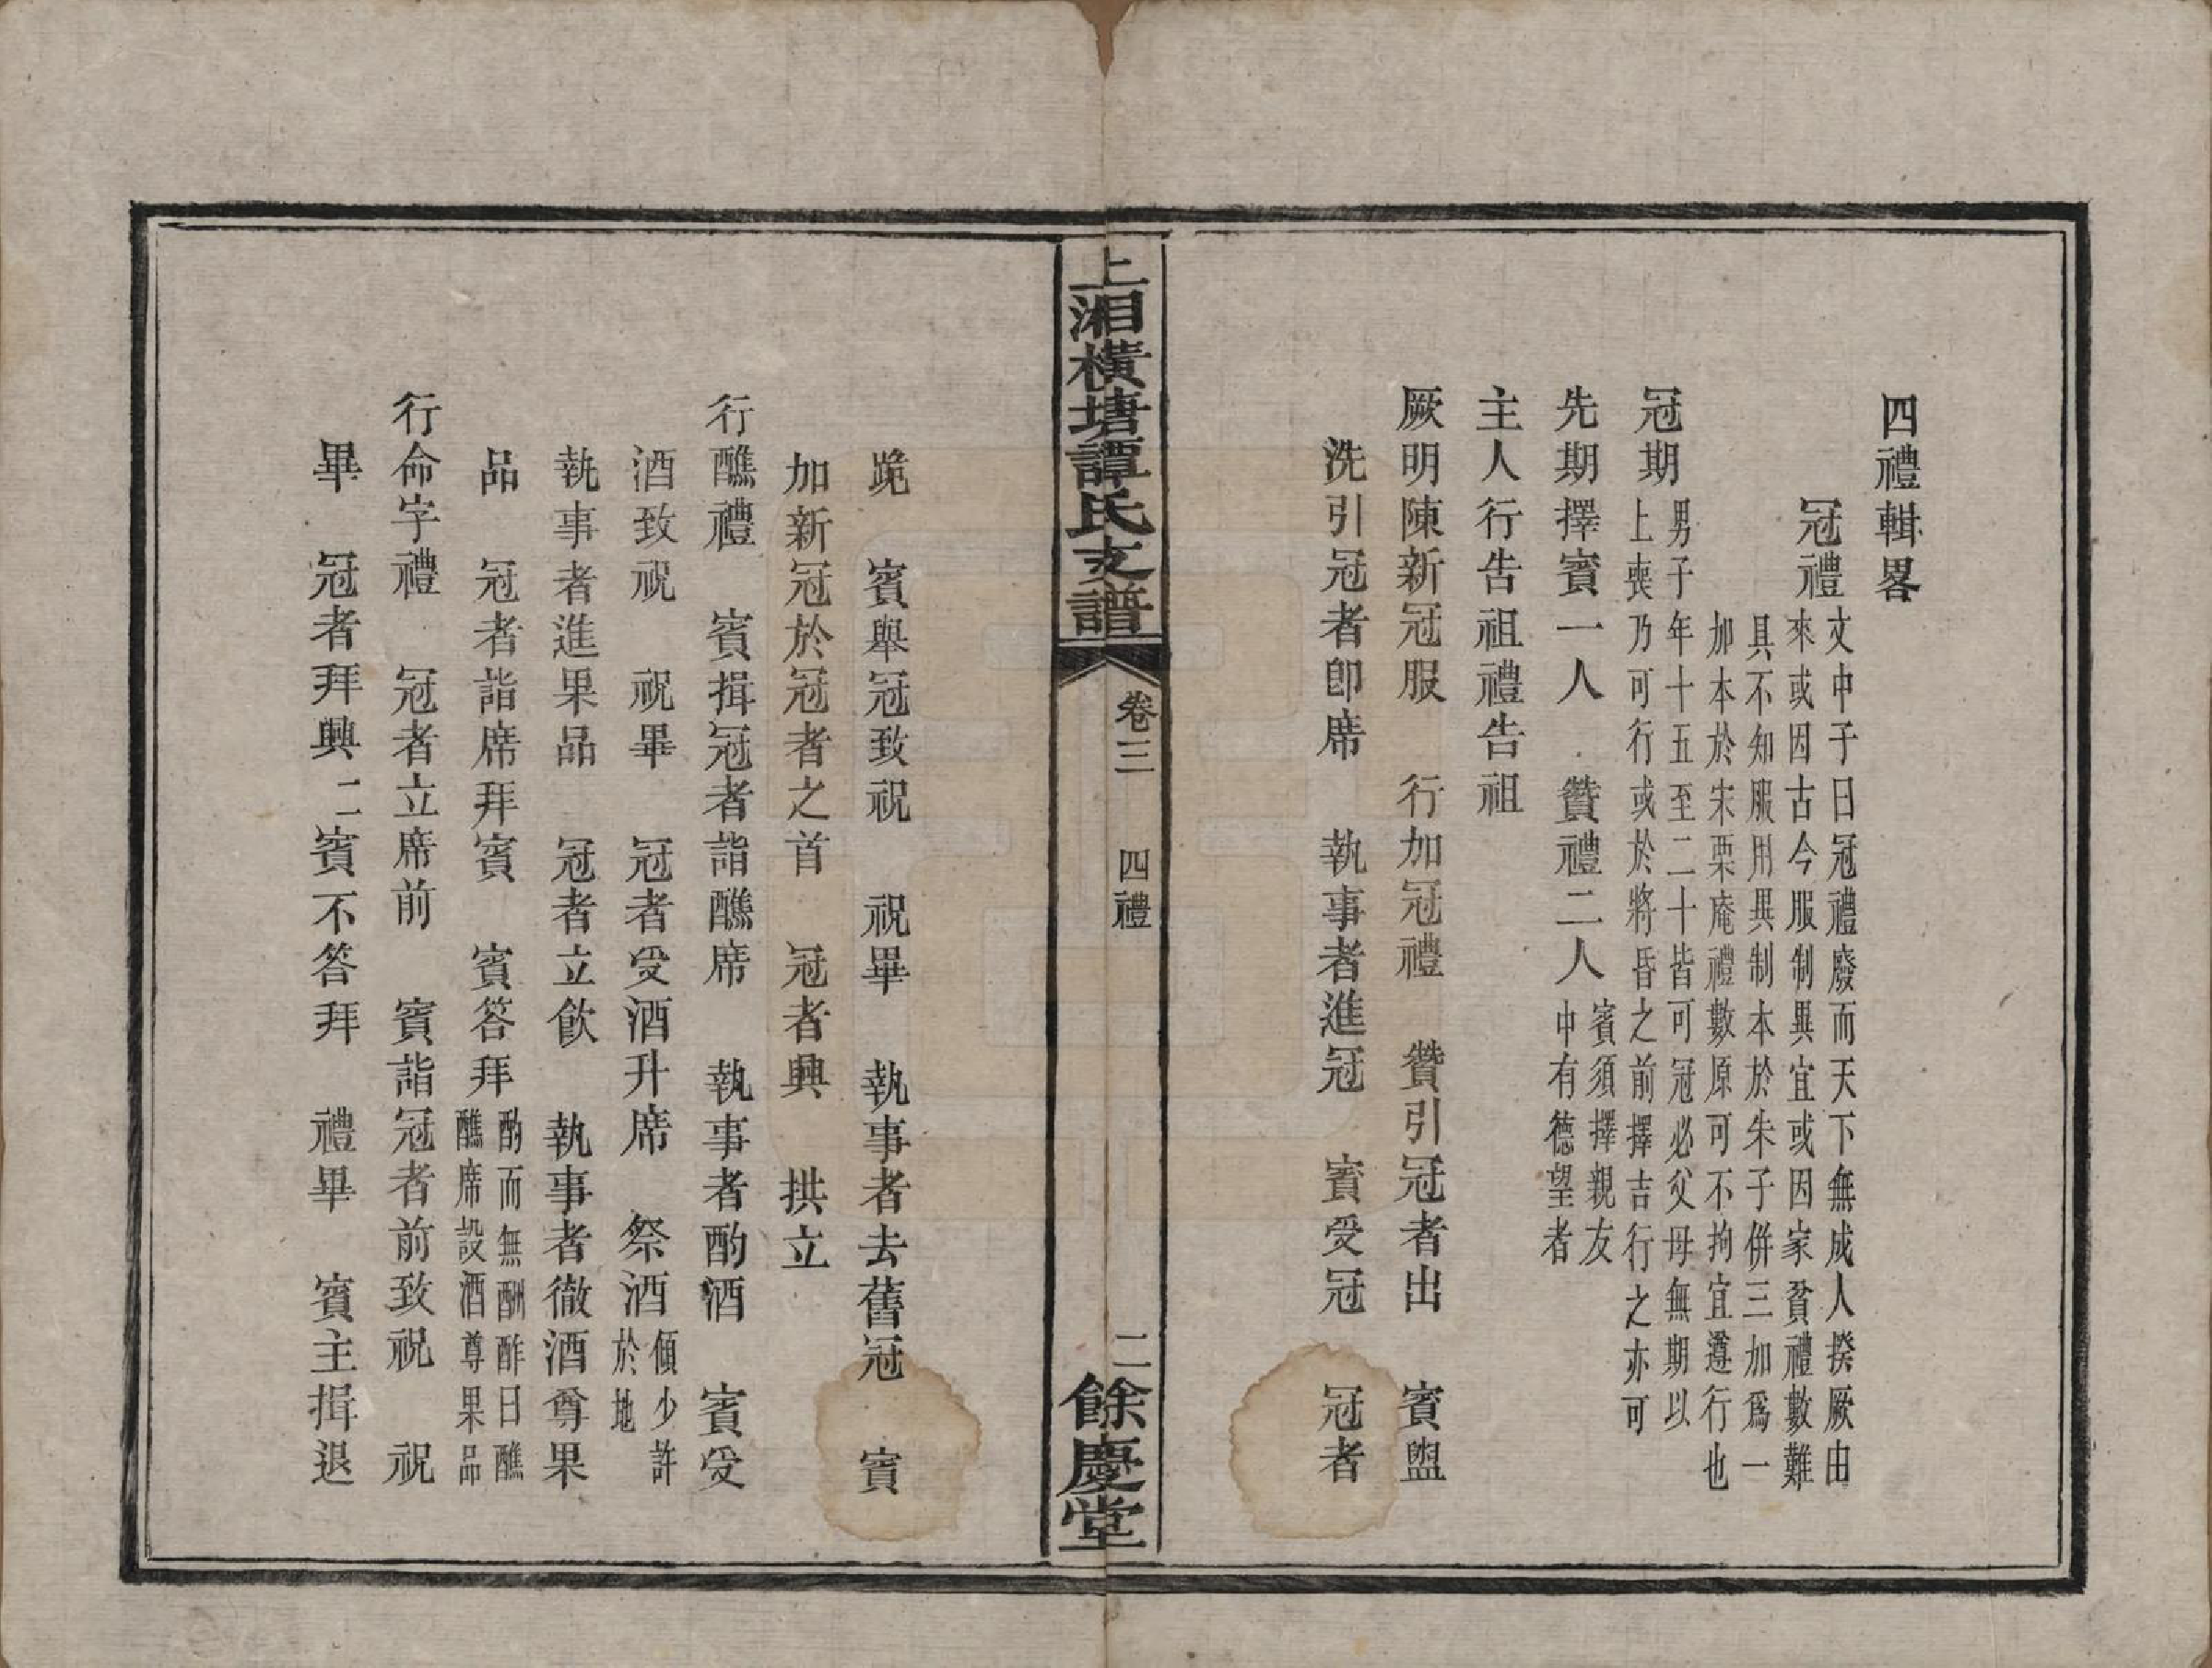 四禮輯畧
冠禮文中子曰冠禮廢而天下無成人揆厥由
來或因古今服制異宜或因家貧禮數難
具不知服用異制本於朱子併三加爲一
加本於宋栗庵禮數原可不拘宜遵行也
冠期男子年十五至二十皆可冠必父母無期以
上喪乃可行或於將昏之前擇吉行之亦可
先期擇賓一人 贊禮二人賓須擇親友
中有德望者
主人行告祖禮告祖
厥明陳新冠服 行加冠禮 贊引冠者出 賓盥
洗引冠者卽席 執事者進冠 賓受冠 冠者
上湘橫塘譚氏支譜 卷三 四禮 二 餘慶堂
跪 賓舉冠致祝 祝畢 執事者去舊冠 賓
加新冠於冠者之首 冠者興 拱立
行醮禮 賓揖冠者詣醮席 執事者酌酒 賓受
酒致祝 祝畢 冠者受酒升席 祭酒傾少許
於地
執事者進果品 冠者立飲 執事者徹酒尊果
品 冠者詣席拜賓 賓答拜酌而無酬酢曰醮
醮席設酒尊果品
行命字禮 冠者立席前 賓詣冠者前致祝 祝
畢 冠者拜興二賓不答拜 禮畢 賓主揖退